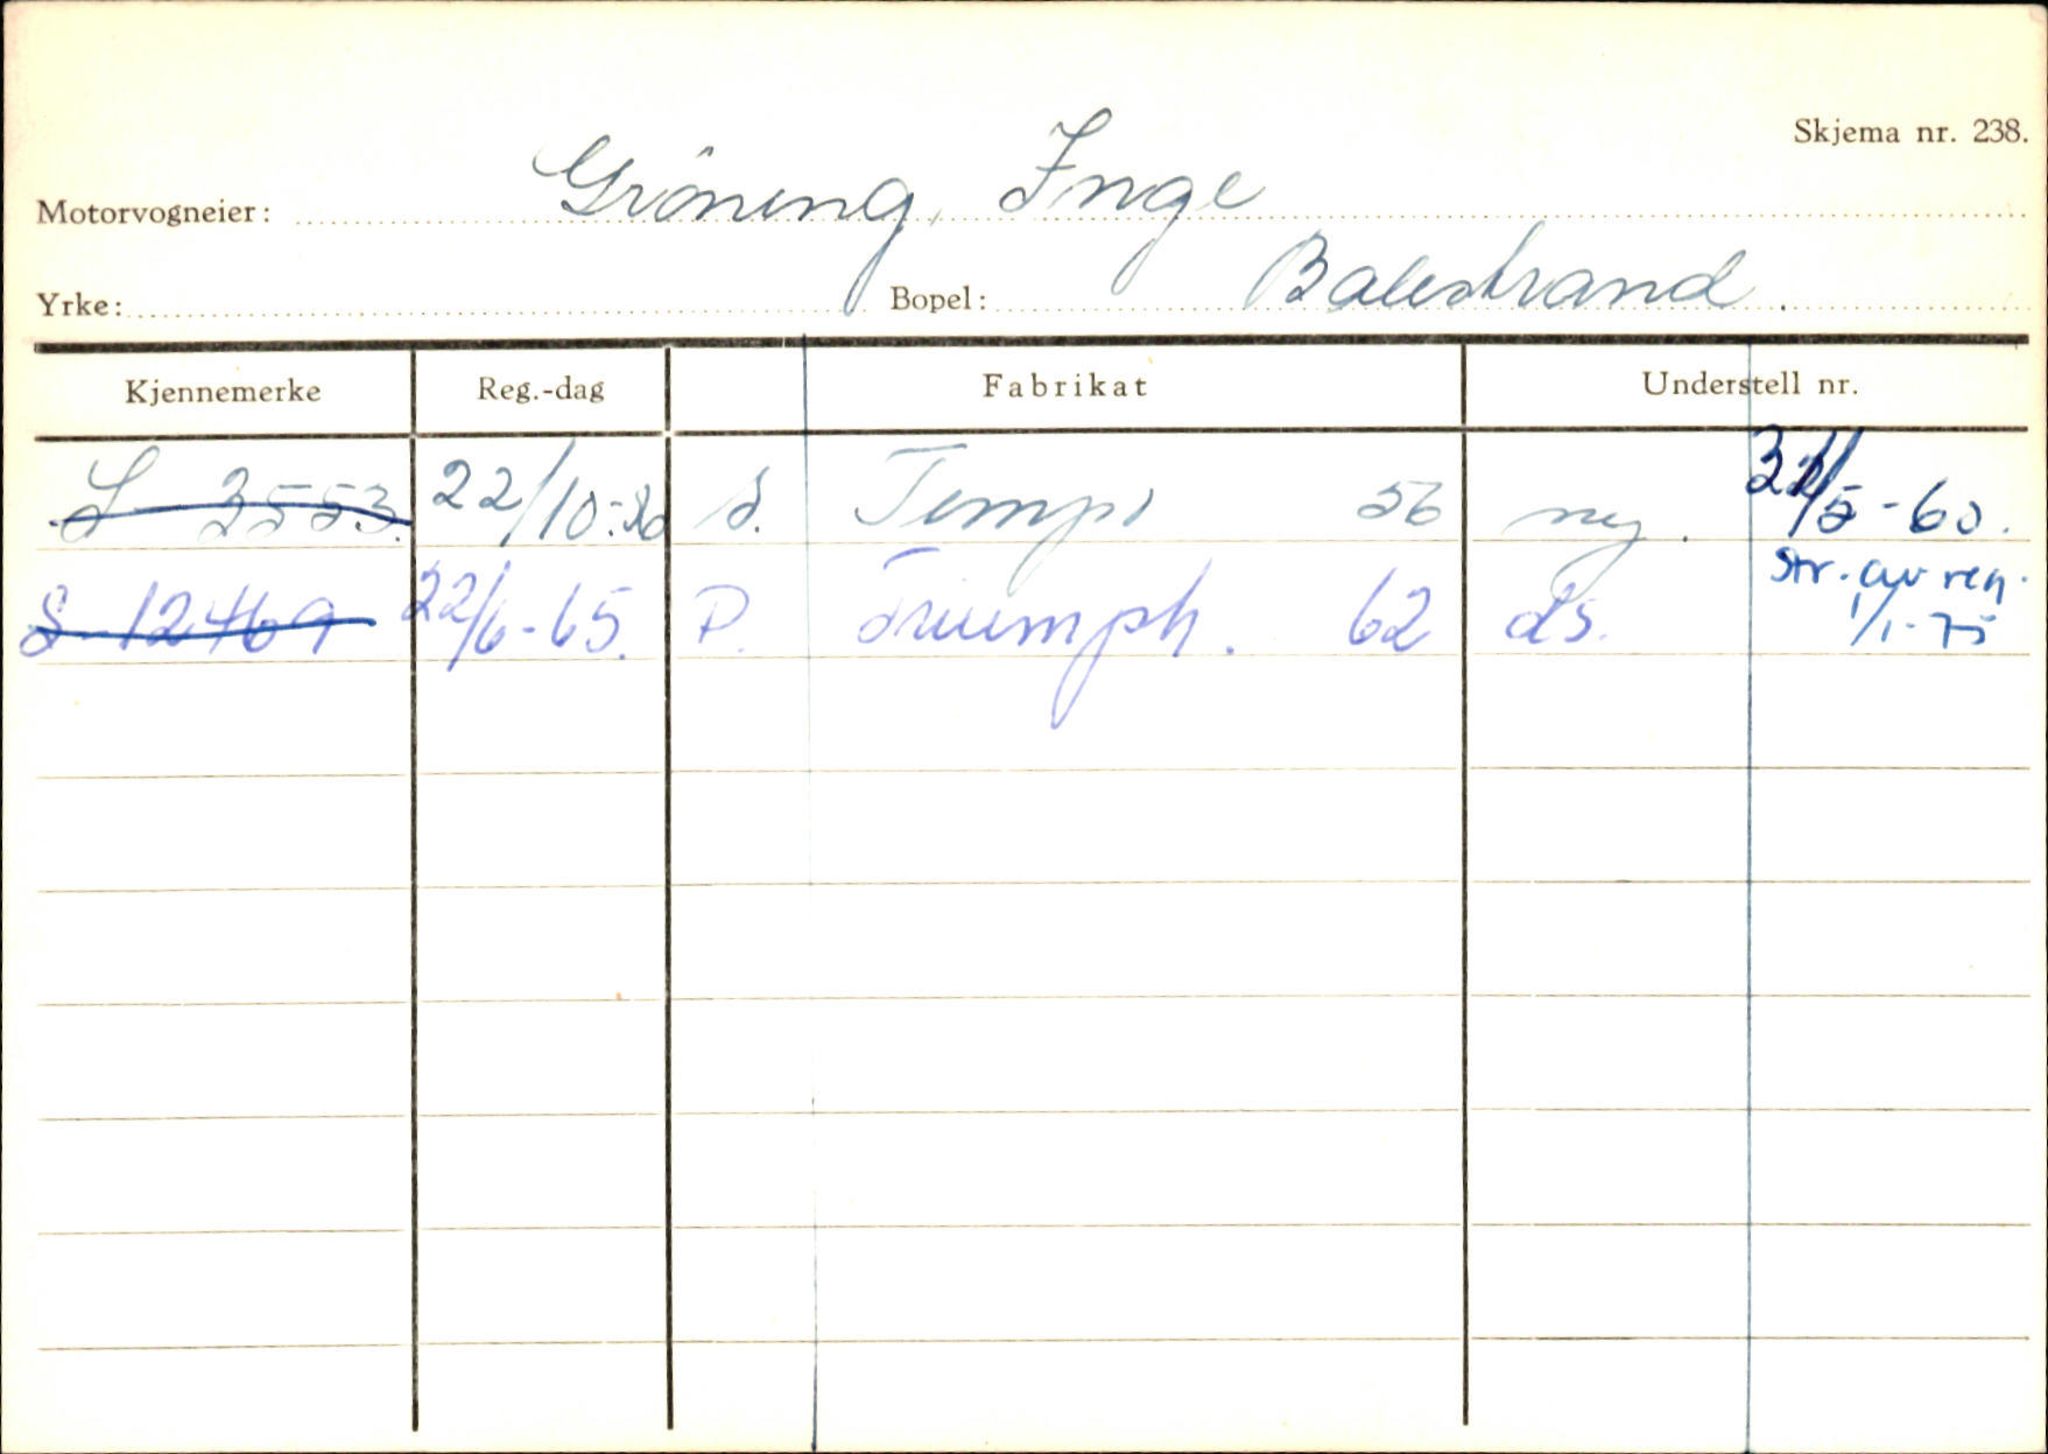 Skjema nr. 238.
Motorvogneier: Gröning, Inge
Yrke: Bopel: Balestrand.
Kjennemerke Reg.-dag Fabrikat Understell nr.
S 3553. 22/10-56 S. Tempo 56 ny. /5-60.
S 12469 22/6-65. P. Triumph. 62 ds. Str. av reg. 1/1-75